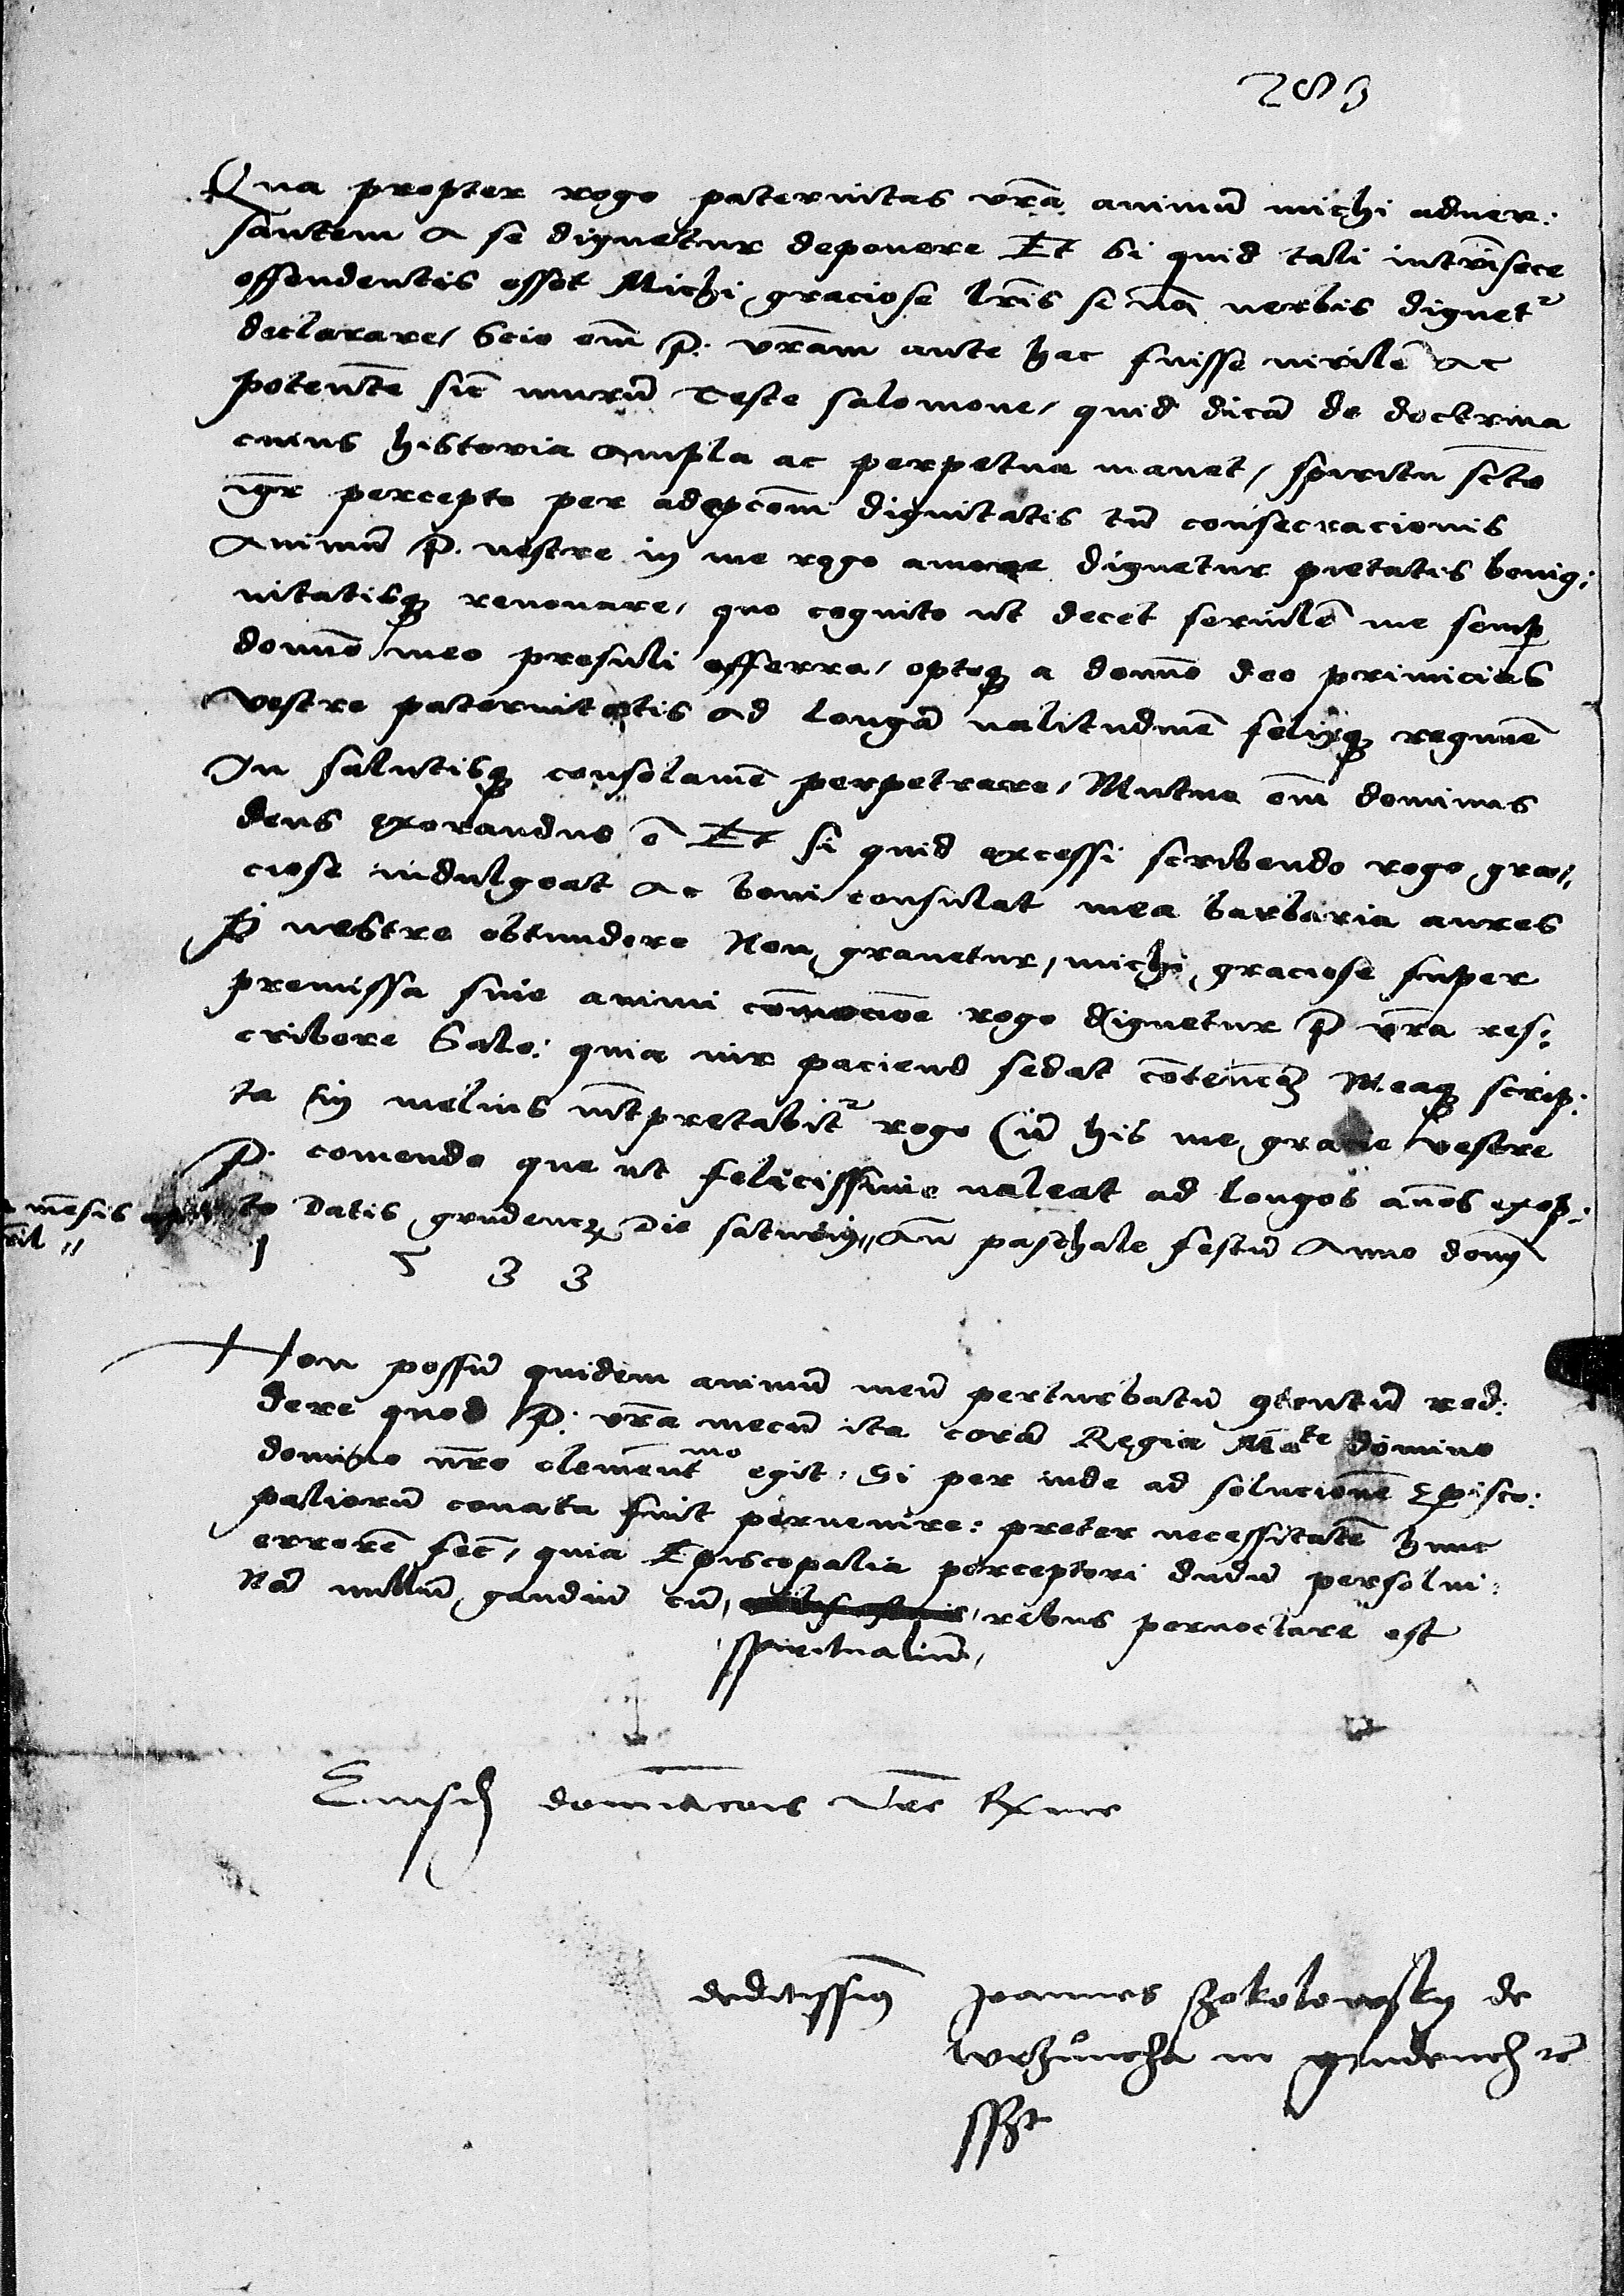 289
Qua propter rogo paternitas vr̄a animū michi aduer:
santem a se dignetur deponere Et si quid tali intrīsece
offendentis esset Michi graciose lrīs se nō uerbis dignet²
declarare / Scio em̄ p. vram̄ ante hac fuisse uirilē ac
potentē sic̄ murū Teste salomone / quid dicā de doctrina
cuius historia ampla ac perpetua manet / spiritu sct̄o
igr̄ percepto per adepcōm dignitatis tū consecracionis
Animū p. uestre in me rogo amore dignetur pietatis benig:
nitatisq̨ renouare / quo cognito ut decet seruilē me semp̄
domīo meo presuli offerre / optoq̨ a domīo deo primicias
vestre paternitatis ad longā ualitudinē felixq̨ regimē
In salutisq̨ consolamē perpetrare / Mutue em̄ dominus
deus exorandus ē Et si quid excessi scribendo rogo gra:
ciose indulgeat ac boni consulat mea barbaria aures
p uestre obtundere Non grauetur / michi graciose super
premissa sine animi cōmocione rogo dignetur p vr̄a res:
cribere Salo: quia uir paciens sedat contencōes Meaq̨ scrip:
ta in melius int̄pretabit² rogo Cū his me gracie vestre
p. comendo que ut felicissime ualeat ad longos annos exop:
to Datis grudencz Die saturni an̄ paschale festū Anno domī
mēsis
ril //
1 5 3 3
Non possū quidem animū meū perturbatū 9tentū red:
dere quod p: vr̄a mecū ita corā Regia Ma^te domino
domino nr̄o clement^mo egit: Si per inde ad solucionē Episco:
paliorū conata fuit peruenire: preter necessitatē hunc
errorē fec̄ / quia Episcopalia perceptori dudū persolui:
Nā nullū gaudiū cū rebus pernoctare est
spiritualiū /
Eiusd̄ domīacōis Vr̄e Rx me
deditissim9 Joannes szokolowsky de
wrzůncza in grudencz
sszt